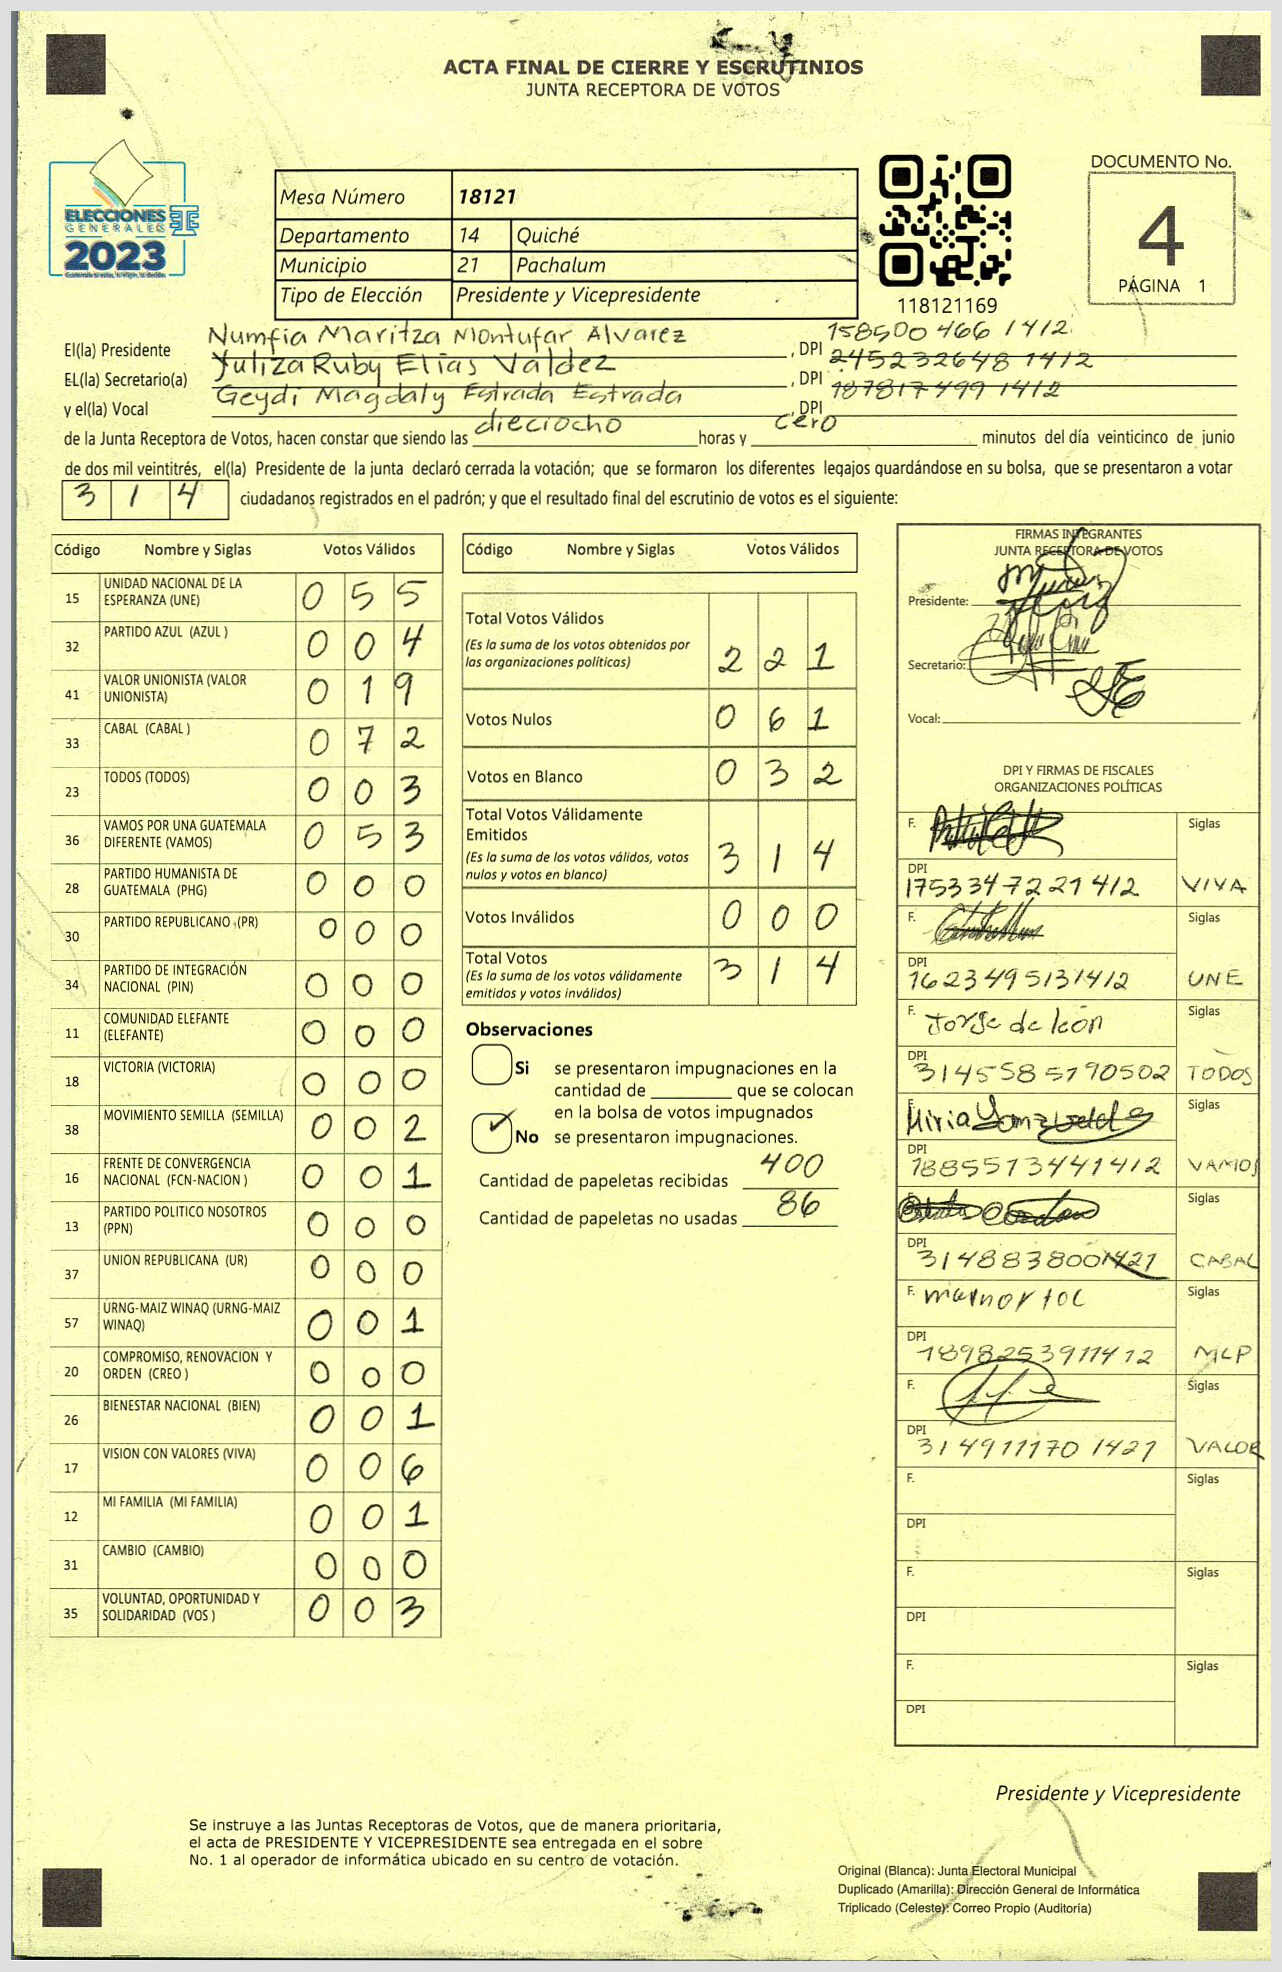 ACTA FINAL DE CIERRE Y ESCRUTINIOS
JUNTA RECEPTORA DE VOTOS
ELECCIONES
GENERALES
2023
Mesa Número 18121
Departamento 14 Quiché
Municipio 21 Pachalum
Tipo de Elección Presidente y Vicepresidente
118121169
DOCUMENTO No.
4
PÁGINA 1
El(la) Presidente Numfia Maritza Montufar Alvarez, DPI 158500 466 1412
EL(la) Secretario(a) Yuliza Ruby Elias Valdez, DPI 245232648 1412
y el(la) Vocal Geydi Magdaly Estrada Estrada, DPI 187817499 1412
de la Junta Receptora de Votos, hacen constar que siendo las dieciocho horas y cero minutos del día veinticinco de junio
de dos mil veintitrés, el(la) Presidente de la junta declaró cerrada la votación; que se formaron los diferentes legajos guardándose en su bolsa, que se presentaron a votar
3 1 4 ciudadanos registrados en el padrón; y que el resultado final del escrutinio de votos es el siguiente:
Código Nombre y Siglas Votos Válidos
15 UNIDAD NACIONAL DE LA ESPERANZA (UNE) 0 5 5
32 PARTIDO AZUL (AZUL ) 0 0 4
41 VALOR UNIONISTA (VALOR UNIONISTA) 0 1 9
33 CABAL (CABAL ) 0 7 2
23 TODOS (TODOS) 0 0 3
36 VAMOS POR UNA GUATEMALA DIFERENTE (VAMOS) 0 5 3
28 PARTIDO HUMANISTA DE GUATEMALA (PHG) 0 0 0
30 PARTIDO REPUBLICANO (PR) 0 0 0
34 PARTIDO DE INTEGRACIÓN NACIONAL (PIN) 0 0 0
11 COMUNIDAD ELEFANTE (ELEFANTE) 0 0 0
18 VICTORIA (VICTORIA) 0 0 0
38 MOVIMIENTO SEMILLA (SEMILLA) 0 0 2
16 FRENTE DE CONVERGENCIA NACIONAL (FCN-NACION ) 0 0 1
13 PARTIDO POLITICO NOSOTROS (PPN) 0 0 0
37 UNION REPUBLICANA (UR) 0 0 0
57 URNG-MAIZ WINAQ (URNG-MAIZ WINAQ) 0 0 1
20 COMPROMISO, RENOVACION Y ORDEN (CREO ) 0 0 0
26 BIENESTAR NACIONAL (BIEN) 0 0 1
17 VISION CON VALORES (VIVA) 0 0 6
12 MI FAMILIA (MI FAMILIA) 0 0 1
31 CAMBIO (CAMBIO) 0 0 0
35 VOLUNTAD, OPORTUNIDAD Y SOLIDARIDAD (VOS ) 0 0 3
Código Nombre y Siglas Votos Válidos
Total Votos Válidos 2 2 1
(Es la suma de los votos obtenidos por
las organizaciones políticas)
Votos Nulos 0 6 1
Votos en Blanco 0 3 2
Total Votos Válidamente
Emitidos 3 1 4
(Es la suma de los votos válidos, votos
nulos y votos en blanco)
Votos Inválidos 0 0 0
Total Votos 3 1 4
(Es la suma de los votos válidamente
emitidos y votos inválidos)
Observaciones
Si se presentaron impugnaciones en la
cantidad de ________ que se colocan
en la bolsa de votos impugnados
No se presentaron impugnaciones.
Cantidad de papeletas recibidas 400
Cantidad de papeletas no usadas 86
FIRMAS INTEGRANTES
JUNTA RECEPTORA DE VOTOS
Presidente:
Secretario:
Vocal:
DPI Y FIRMAS DE FISCALES
ORGANIZACIONES POLÍTICAS
F. Siglas
DPI 1753347221412 VIVA
F. Siglas
DPI 1623495131412 UNE
F. Jorge de león Siglas
DPI 3145585190502 TODOS
F. Siglas
DPI 1885513441412 VAMOS
Siglas
DPI 3148838001421 CABAL
F. Siglas
DPI 1898253911412 MLP
F. Siglas
DPI 314911170 1421 VALOR
F. Siglas
DPI
F. Siglas
DPI
F. Siglas
DPI
Presidente y Vicepresidente
Se instruye a las Juntas Receptoras de Votos, que de manera prioritaria,
el acta de PRESIDENTE Y VICEPRESIDENTE sea entregada en el sobre
No. 1 al operador de informática ubicado en su centro de votación.
Original (Blanca): Junta Electoral Municipal
Duplicado (Amarilla): Dirección General de Informática
Triplicado (Celeste): Correo Propio (Auditoría)